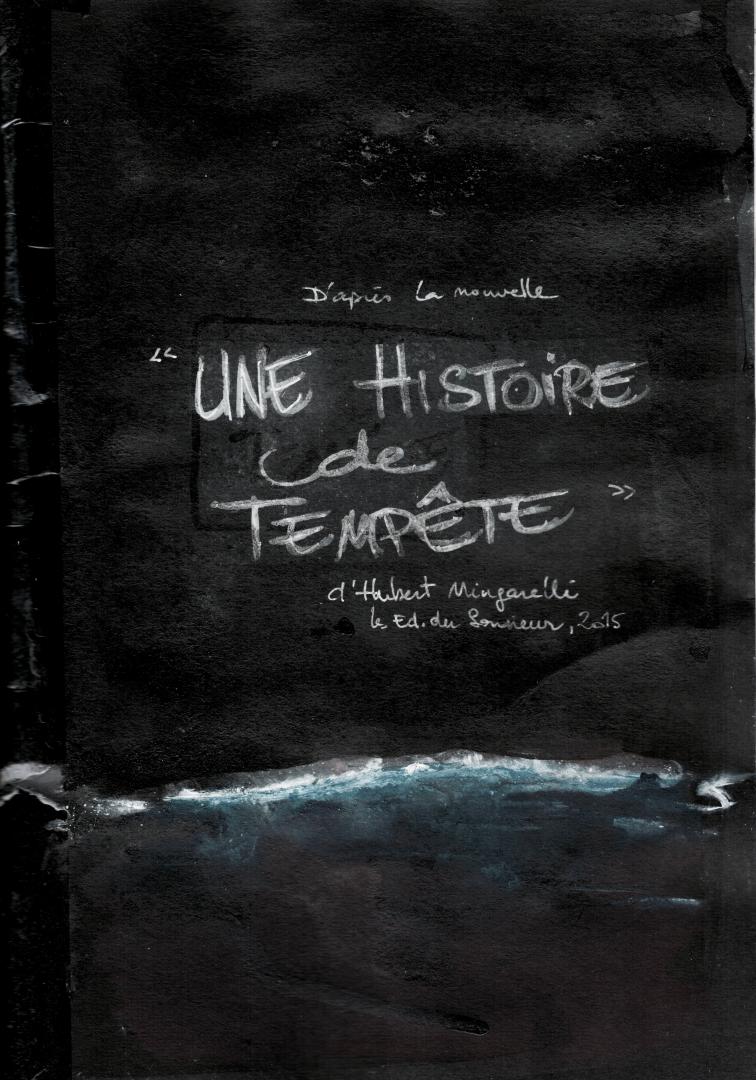 D'après la nouvelle
« UNE HISTOIRE
de
TEMPÊTE »
d'Hubert Mingarelli
les Ed. du Sonneur, 2015